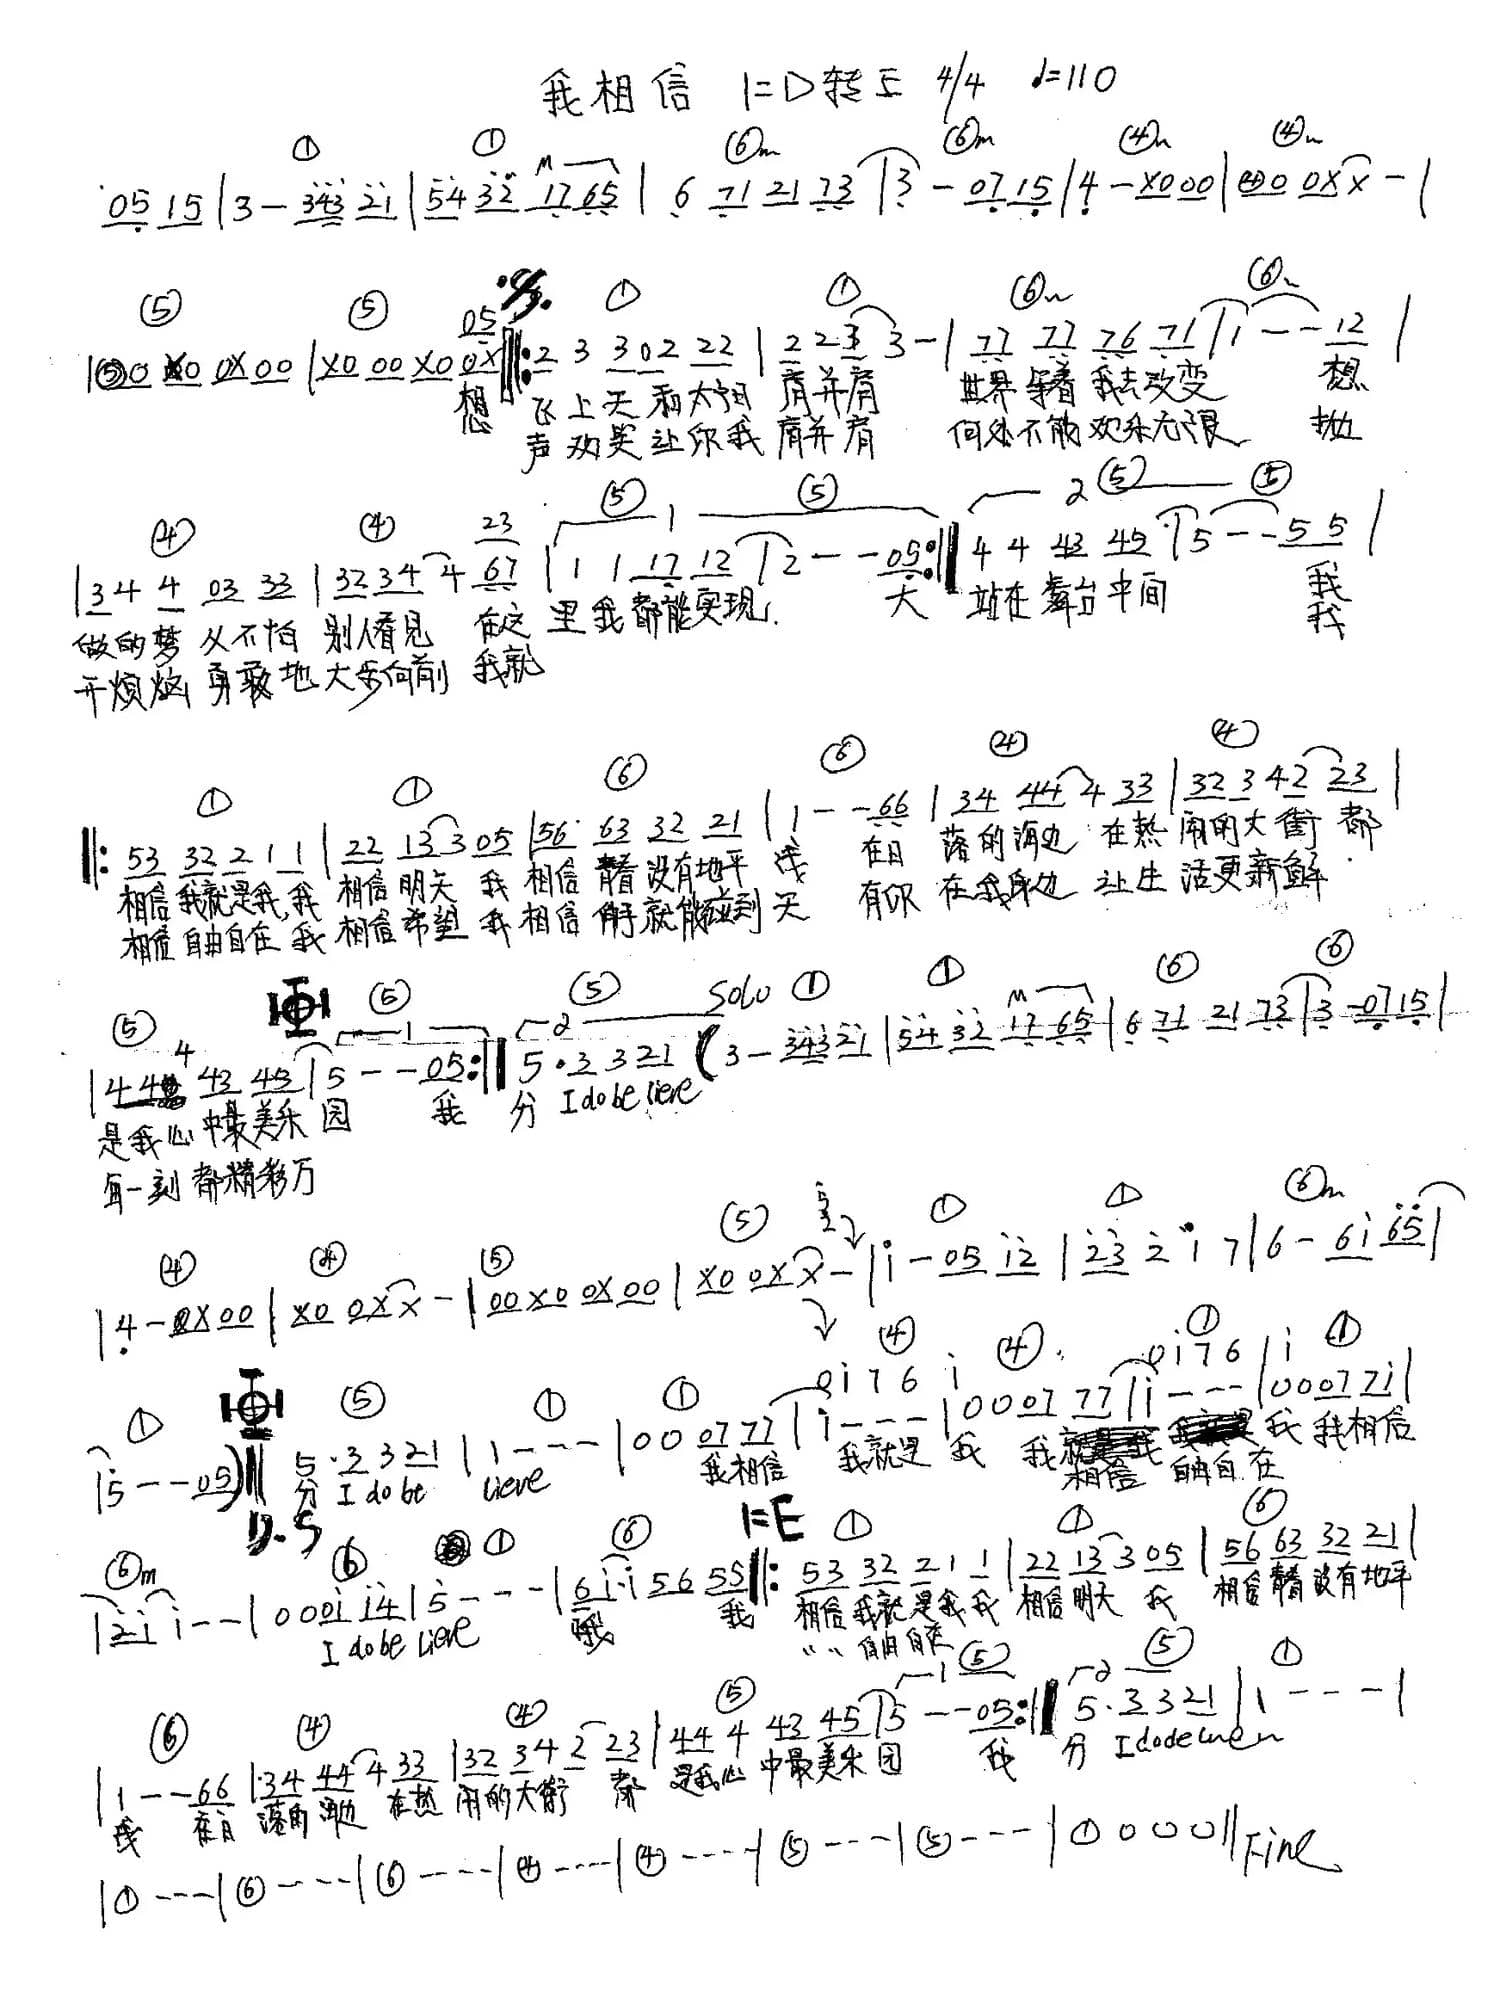 我相信 1=D转E 4/4 ♩=110
① ① ⑥m ⑥m ④ ④
05 15 | 3 - 343 21 | 54 32 17 65 | 6 71 21 73 | 3 - 07 15 | 4 - X0 00 | 00 0X X - |
⑤ ⑤ 05 ① ① ⑥ ⑥
X0 0X 00 | X0 00 X0 0X ‖: 2 3 3 02 22 | 2 2 3 3 - | 77 77 76 71 | 1 - - 12 |
想 飞上天 和太阳 肩并肩 世界等着我去改变 想
声欢笑 让你我 肩并肩 何处不能欢乐无限 抛
④ ④ 23 ⑤ 1 ⑤ 2 ⑤ ⑤
| 3 4 4 03 33 | 32 34 4 67 | 1 1 17 12 | 2 - - 05 :‖ 4 4 43 45 | 5 - - 5 5 |
做的梦 从不怕 别人看见 在这 里我都能实现 大 站在舞台中间 我
开烦恼 勇敢地 大步向前 我就 我
① ① ⑥ ⑥ ④ ④
‖: 53 32 2 1 1 | 22 13 3 05 | 56 63 32 21 | 1 - - 66 | 34 44 4 33 | 32 3 4 2 23 |
相信我就是我,我 相信明天 我 相信青春没有地平 线 在日 落的海边 在热 闹的大街 都
相信自由自在 我 相信希望 我 相信伸手就能碰到 天 有你 在我身边 让生 活更新鲜
⑤ ⑤ 1 ⑤ 2 Solo ① ① ⑥ ⑥
| 44 4 43 45 | 5 - - 05 :‖ 5 · 3 3 21 ( 3 - 343 21 | 54 32 17 65 | 6 71 21 73 | 3 - 07 15 |
是我心中最美乐 园 我 分 I do be lieve
每一刻都精彩万
④ ④ ⑤ ⑤ ① ① ⑥m
| 4 - 0X 00 | X0 0X X - | 00 X0 0X 00 | X0 0X X - | 1 - 05 12 | 23 2 1 7 | 6 - 61 65 |
① ⑤ ① ① 0 1 7 6 1 ④ ④ 0 1 7 6 1 ① ①
| 5 - - 05 ) ‖ 5 · 3 3 21 | 1 - - - | 0 0 07 77 | 1 - - - | 0 0 07 77 | 1 - - - | 0 0 07 71 |
分 I do be lieve 我相信 我就是 我 我 相信 自由自在 我 我相信
D.S
⑥m ⑥ ① ⑥ 1=E ① ① ⑥
| 21 1 - - | 0 0 01 14 | 5 - - - | 61 1 56 55 ‖: 53 32 2 1 1 | 22 13 3 05 | 56 63 32 21 |
I do be lieve 哦 我 相信我就是我我 相信明天 我 相信青春没有地平
〃 〃 自由自在
⑥ ④ ④ ⑤ 1 ⑤ 2 ⑤ ①
| 1 - - 66 | 34 44 4 33 | 32 3 4 2 23 | 44 4 43 45 | 5 - - 05 :‖ 5 · 3 3 21 | 1 - - - |
线 在日 落的海边 在热 闹的大街 都 是我心 中最美乐 园 我 分
| ① - - - | ⑥ - - - | ⑥ - - - | ④ - - - | ④ - - - | ⑤ - - - | ⑤ - - - | ① 0 0 0 ‖ Fine